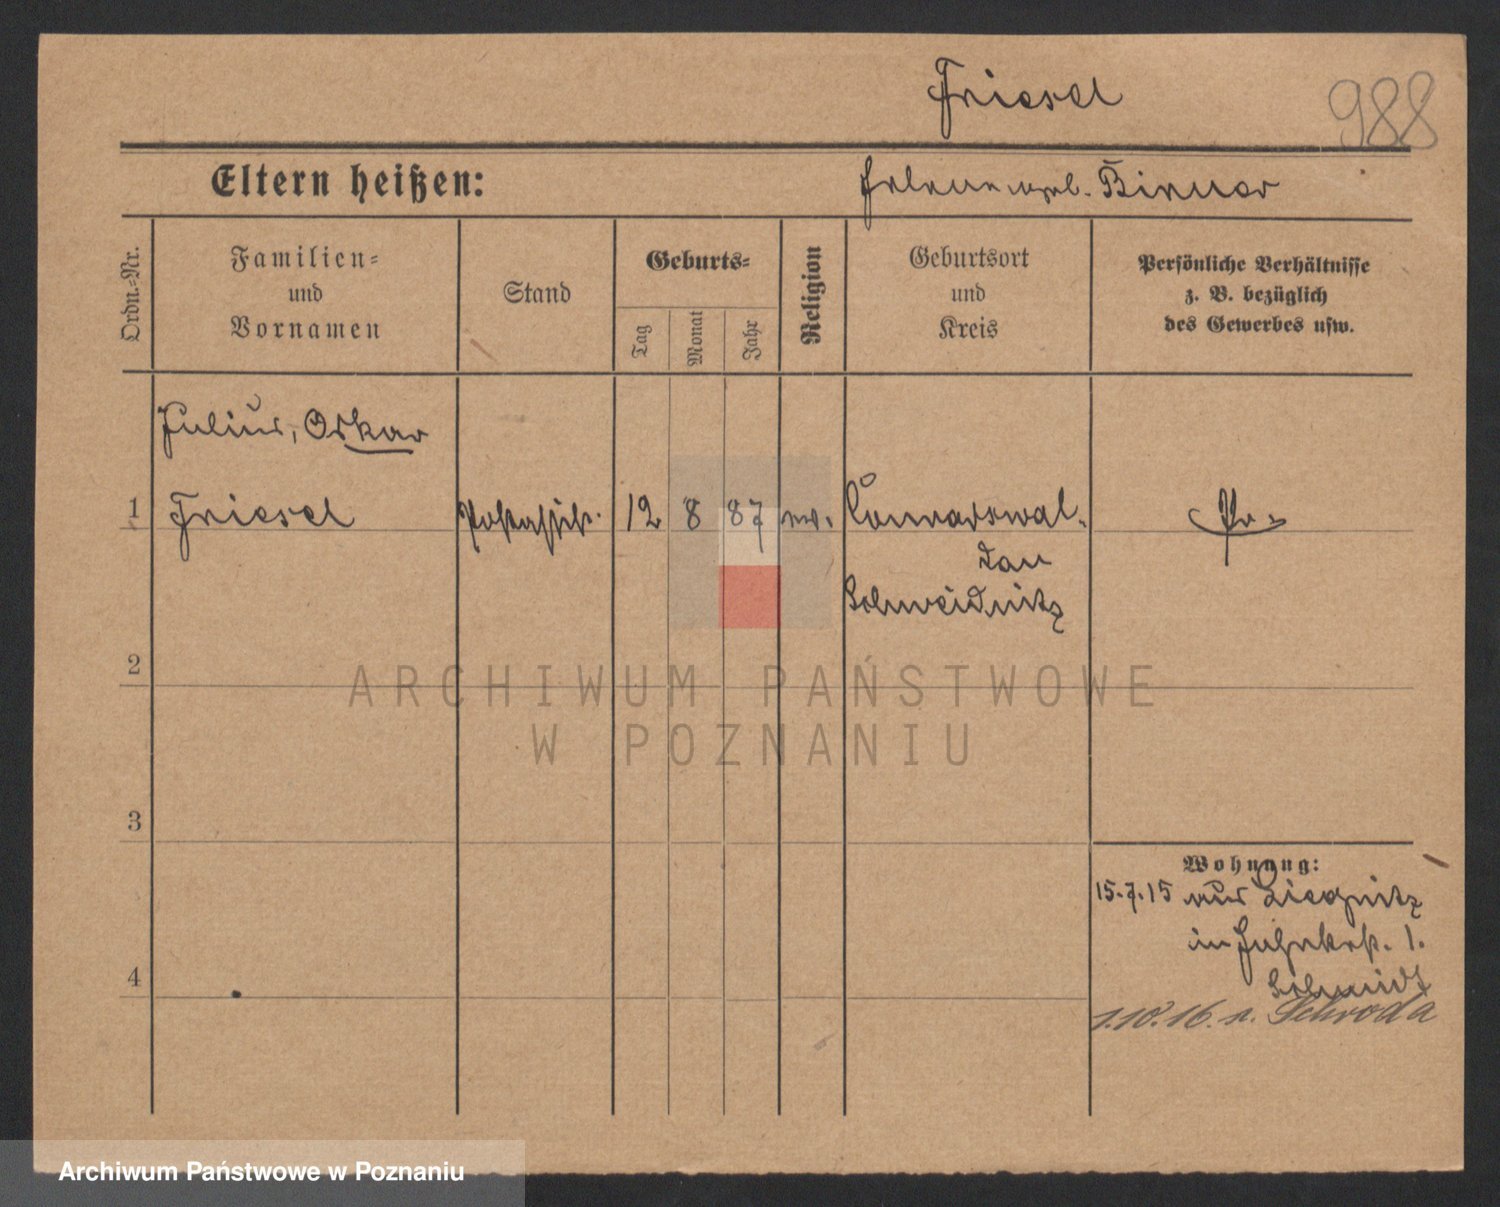 Friesel
988
Eltern heißen:
Helene geb. Birner
Ordn.-Nr.
Familien-
und
Vornamen
Stand
Geburts-
Tag
Monat
Jahr
Religion
Geburtsort
und
Kreis
Persönliche Verhältnisse
z. B. bezüglich
des Gewerbes usw.
Julius, Oskar
1 Friesel Postassist. 12 8 87 ev. Conradswal-
dau
Schweidnitz
2
ARCHIWUM PAŃSTWOWE
W POZNANIU
3
Wohnung:
15.7.15 aus Liegnitz
in 1.
4
Schmidt
1.10.16. n. Schroda
Archiwum Państwowe w Poznaniu